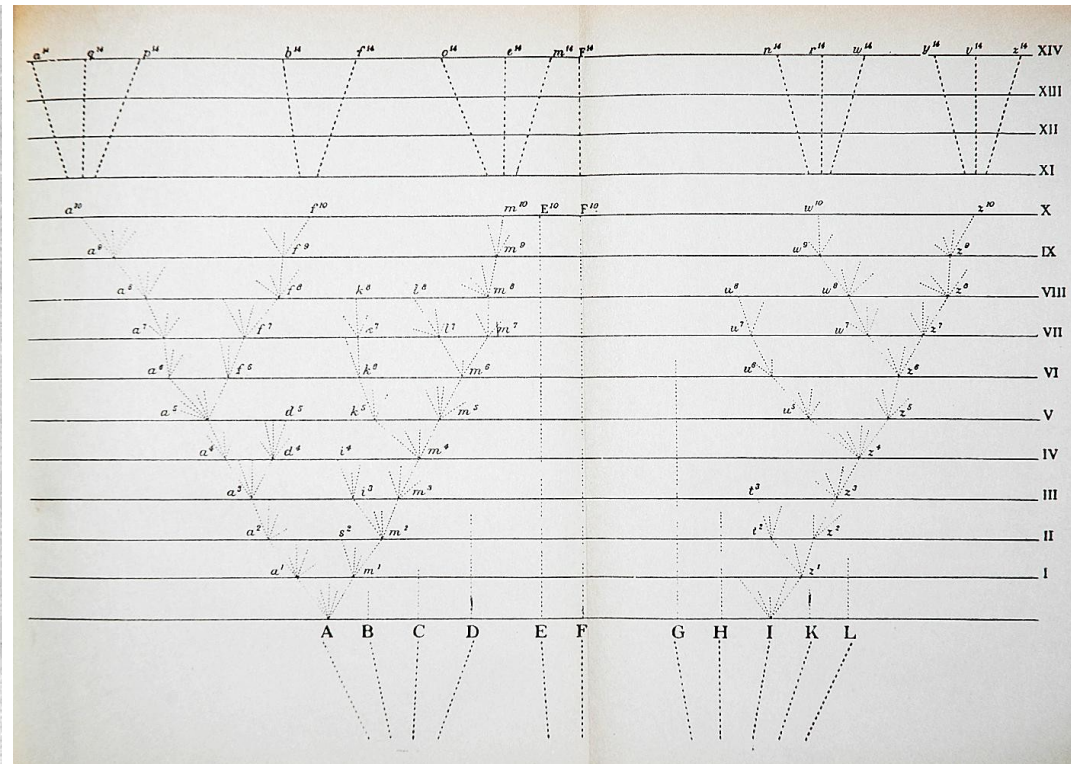 a¹⁴ q¹⁴ p¹⁴ b¹⁴ f¹⁴ o¹⁴ e¹⁴ m¹⁴ F¹⁴ n¹⁴ r¹⁴ w¹⁴ y¹⁴ v¹⁴ z¹⁴ XIV
XIII
XII
XI
a¹⁰ f¹⁰ m¹⁰ E¹⁰ F¹⁰ w¹⁰ z¹⁰ X
a⁹ f⁹ m⁹ w⁹ z⁹ IX
a⁸ f⁸ k⁸ l⁸ m⁸ u⁸ w⁸ z⁸ VIII
a⁷ f⁷ l⁷ m⁷ u⁷ w⁷ z⁷ VII
a⁶ f⁶ k⁶ m⁶ u⁶ z⁶ VI
a⁵ d⁵ k⁵ m⁵ u⁵ z⁵ V
a⁴ d⁴ i⁴ m⁴ z⁴ IV
a³ i³ m³ t³ z³ III
a² s² m² t² z² II
a¹ m¹ z¹ I
A B C D E F G H I K L